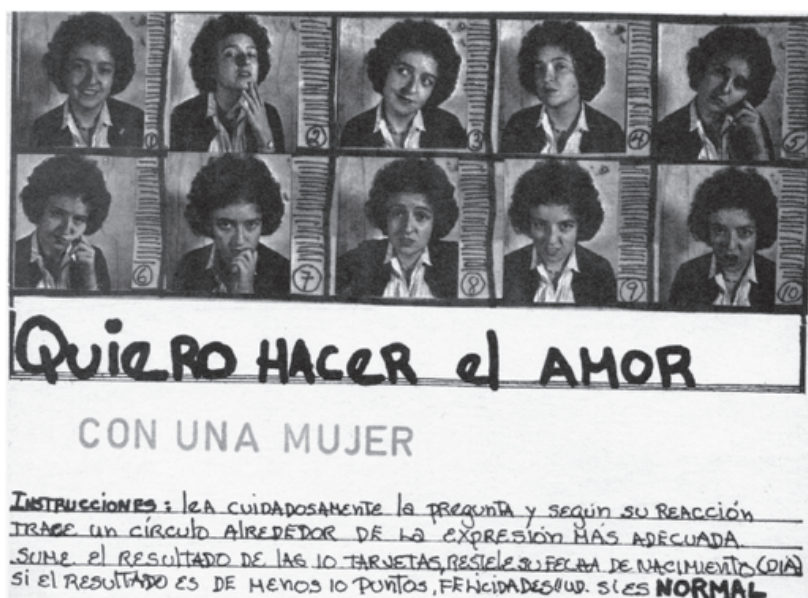 1 2 3 4 5
6 7 8 9 10
QUIERO HACER el AMOR
CON UNA MUJER
INSTRUCCIONES: leA CUIDADOSAMENTE la PREGUNTA y SEGÚN SU REACCIÓN
TRACE UN CÍRCULO AlREDEDOR DE LA EXPRESIÓN MÁS ADECUADA.
SUME el RESULTADO DE LAS 10 TARJETAS, RESTELE SU FECHA DE NACIMIENTO (DIA)
SI EL RESULTADO ES DE MENOS 10 PUNTOS, FELICIDADES! UD. SI ES NORMAL